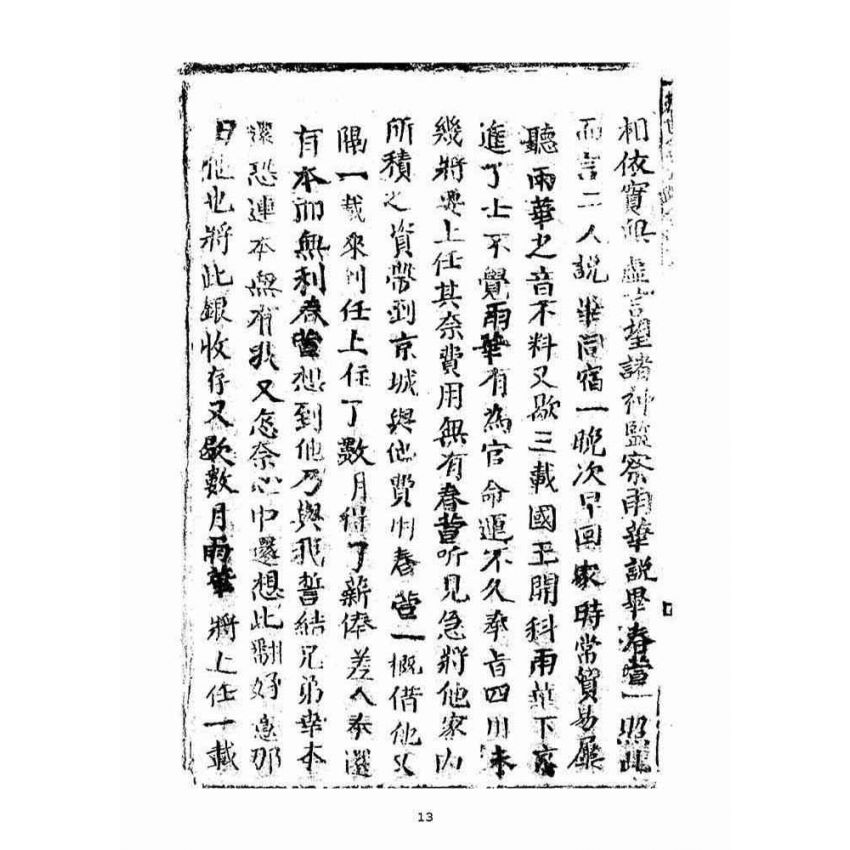 相依實無虛言望諸神監察雨華說畢春萱一照此
而言二人說畢同宿一晚次早回家時常貿易屢
聽雨華之音不料又歇三載國王開科雨華下京
進了士不覺雨華有為官命運不久奉旨四川未
幾將要上任其奈費用無有春萱听見急將他家內
所積之資帶到京城與他費用春萱一概借他又
隔一載來到任上住了數月得了薪俸差人奉還
有本而無利春萱想到他乃與我誓結兄弟幸本
還恐連本無有我又怎奈心中還想此
日他也將此銀收存又歇數月雨華將上任一載
13